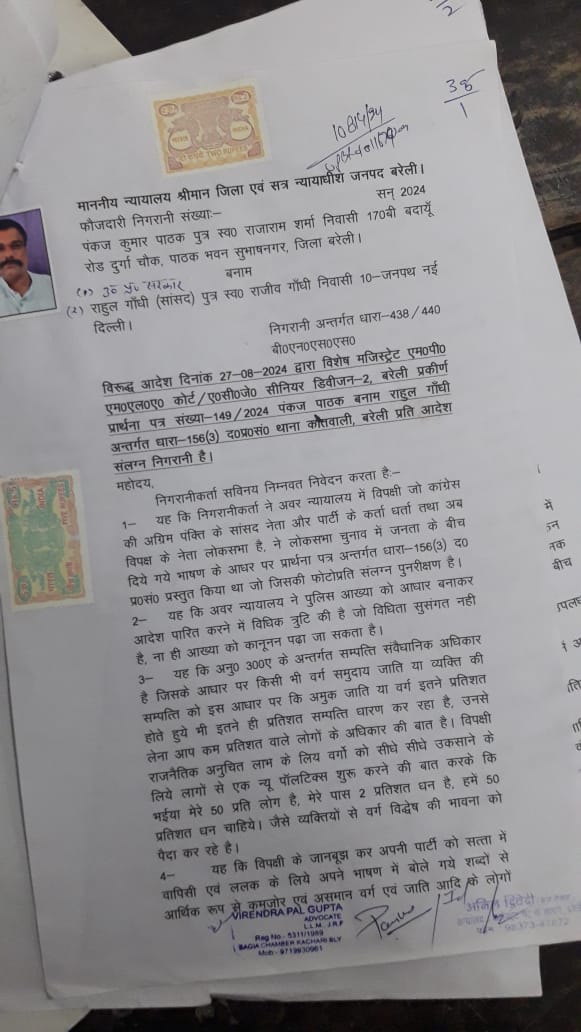 2
38
1
TWO RUPEES
INDIA
माननीय न्यायालय श्रीमान जिला एवं सत्र न्यायाधीश जनपद बरेली।
फौजदारी निगरानी संख्याः– सन् 2024
पंकज कुमार पाठक पुत्र स्व0 राजाराम शर्मा निवासी 170बी बदायूँ
रोड दुर्गा चौक, पाठक भवन सुभाषनगर, जिला बरेली।
बनाम
(1) उ0 प्र0 सरकार
(2) राहुल गाँधी (सांसद) पुत्र स्व0 राजीव गाँधी निवासी 10–जनपथ नई
दिल्ली।
निगरानी अन्तर्गत धारा–438/440
बी0एन0एस0एस0
विरूद्ध आदेश दिनांक 27-08-2024 द्वारा विशेष मजिस्ट्रेट एम0पी0
एम0एल0ए0 कोर्ट/ए0सी0जे0 सीनियर डिवीजन–2, बरेली प्रकीर्ण
प्रार्थना पत्र संख्या–149/2024 पंकज पाठक बनाम राहुल गाँधी
अन्तर्गत धारा–156(3) द0प्र0सं0 थाना कोतवाली, बरेली प्रति आदेश
संलग्न निगरानी है।
महोदय,
निगरानीकर्ता सविनय निम्नवत निवेदन करता हैः–
1– यह कि निगरानीकर्ता ने अवर न्यायालय में विपक्षी जो कांग्रेस
की अग्रिम पंक्ति के सांसद नेता और पार्टी के कर्ता धर्ता तथा अब
विपक्ष के नेता लोकसभा है, ने लोकसभा चुनाव में जनता के बीच
दिये गये भाषण के आधर पर प्रार्थना पत्र अन्तर्गत धारा–156(3) द0
प्र0सं0 प्रस्तुत किया था जो जिसकी फोटोप्रति संलग्न पुनरीक्षण है।
2– यह कि अवर न्यायालय ने पुलिस आख्या को आधार बनाकर
आदेश पारित करने में विधिक त्रुटि की है जो विधिता सुसंगत नही
है, ना ही आख्या को कानूनन पढ़ा जा सकता है।
3– यह कि अनु0 300ए के अन्तर्गत सम्पत्ति संवैधानिक अधिकार
है जिसके आधार पर किसी भी वर्ग समुदाय जाति या व्यक्ति की
सम्पत्ति को इस आधार पर कि अमुक जाति या वर्ग इतने प्रतिशत
होते हुये भी इतने ही प्रतिशत सम्पत्ति धारण कर रहा है, उनसे
लेना आप कम प्रतिशत वाले लोगों के अधिकार की बात है। विपक्षी
राजनैतिक अनुचित लाभ के लिय वर्गो को सीधे सीधे उकसाने के
लिये लागों से एक न्यू पॉलटिक्स शुरू करने की बात करके कि
भईया मेरे 50 प्रति लोग है, मेरे पास 2 प्रतिशत धन है, हमें 50
प्रतिशत धन चाहिये। जैसे व्यक्तियों से वर्ग विद्धेष की भावना को
पैदा कर रहे है।
4– यह कि विपक्षी के जानबूझ कर अपनी पार्टी को सत्ता में
वापिसी एवं ललक के लिये अपने भाषण में बोले गये शब्दों से
आर्थिक रूप से कमजोर एवं असमान वर्ग एवं जाति आदि के लोगों
VIRENDRA PAL GUPTA
ADVOCATE
L.L.M. J.R.F
Reg No.- 5311/1989
BAGIA CHAMBER KACHARI BLY
Mob - 9719930961
अंकित द्विवेदी
में
तक
बीच